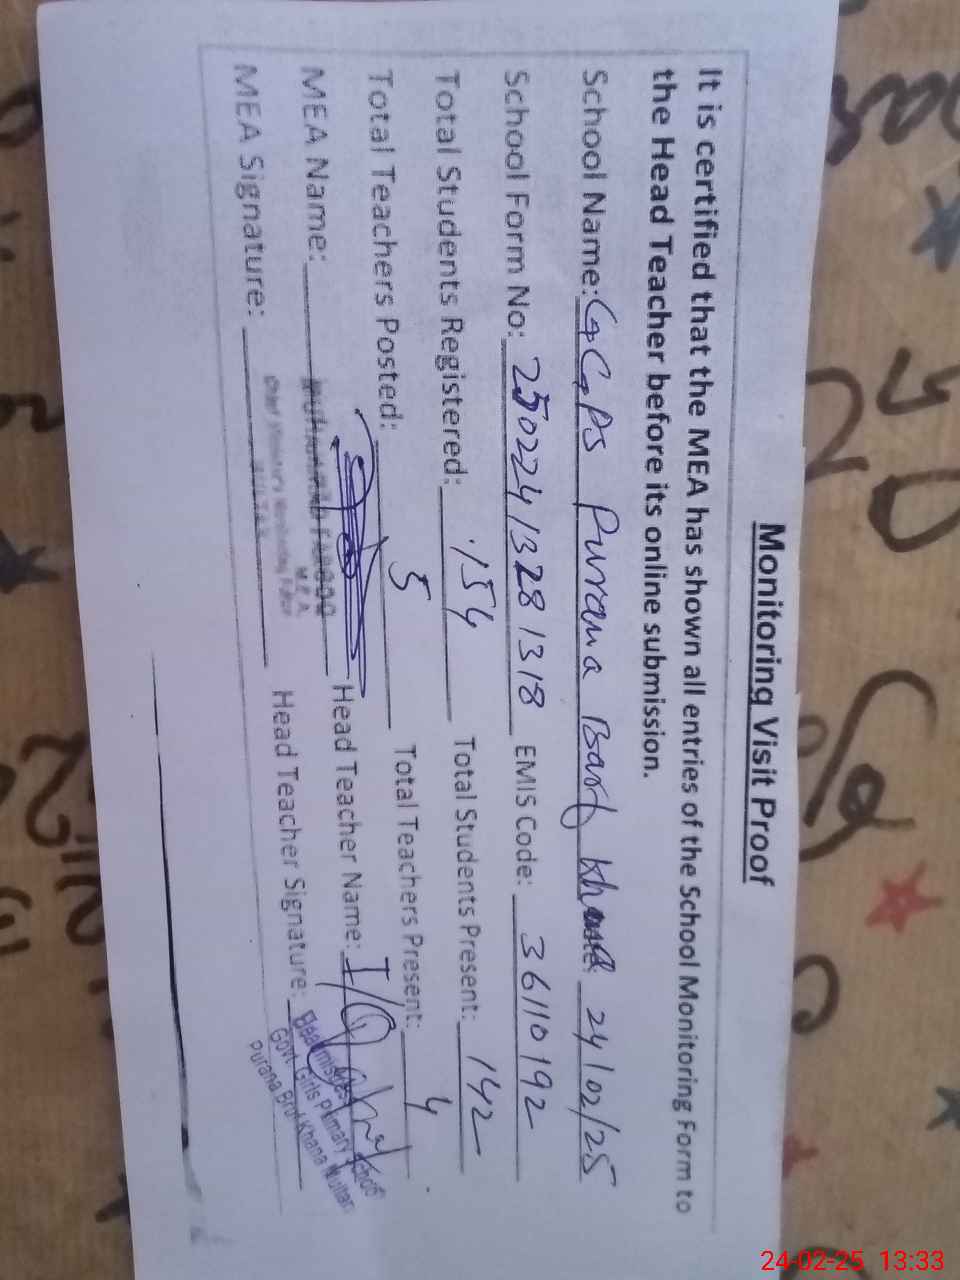 Monitoring Visit Proof
It is certified that the MEA has shown all entries of the School Monitoring Form to
the Head Teacher before its online submission.
School Name: GGPS Purana Barf Khana 24/02/25
School Form No: 25022413281318 EMIS Code: 36110192
Total Students Registered: 154 Total Students Present: 142
Total Teachers Posted: 5 Total Teachers Present: 4
MEA Name: Head Teacher Name:
MEA Signature: Head Teacher Signature:
M.E.A.
Headmistress
Govt. Girls Primary School
Purana Bruf Khana Multan
24-02-25 13:33